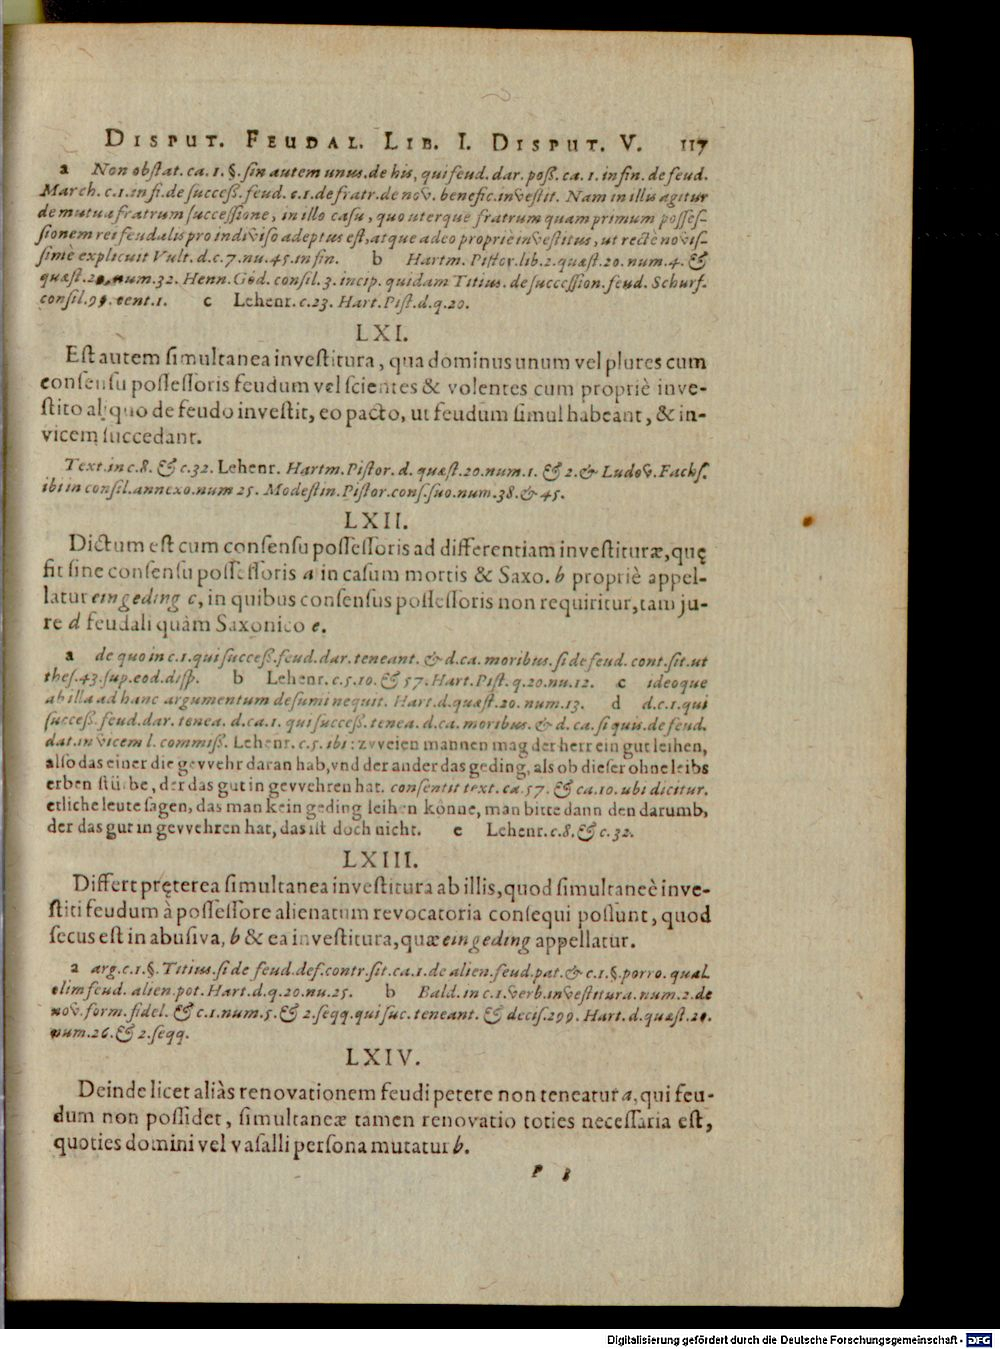 DISPUT. FEUDAL. LIB. I. DISPUT. V. 117
a Non obstat. ca. 1. §. sin autem unus. de his, qui feud. dar. poß. ca. 1. in fin. de feud.
March. c. 1. in fi. de succeß. feud. c. 1. de fratr. de nov. benefic. investit. Nam in illis agitur
de mutua fratrum successione, in illo casu, quo uterque fratrum quamprimum posses-
sionem rei feudalis pro indiviso adeptus est, atque adeo propriè investitus, ut rectè novis-
simè explicuit Vult. d. c. 7. nu. 45. in fin. b Hartm. Pistor. lib. 2. quæst. 20. num. 4. &
quæst. num. 32. Henn. Göd. consil. 3. incip. quidam Titius. de succession. feud. Schurf.
consil. 99. cent. 1. c Lehenr. c. 23. Hart. Pist. d. q. 20.
LXI.
Est autem simultanea investitura, qua dominus unum vel plures cum
consensu possessoris feudum vel scientes & volentes cum propriè inve-
stito aliquo de feudo investit, eo pacto, ut feudum simul habeant, & in-
vicem succedant.
Text. in c. 8. & c. 32. Lehenr. Hartm. Pistor. d. quæst. 20. num. 1. & 2. & Ludov. Fachs.
ibi in consil. annexo. num 25. Modestin. Pistor. cons. suo. num. 38. & 45.
LXII.
Dictum est cum consensu possessoris ad differentiam investituræ, quę
fit sine consensu possessoris a in casum mortis & Saxo. b propriè appel-
latur eingeding c, in quibus consensus possessoris non requiritur, tam ju-
re d feudali quàm Saxonico e.
a de quo in c. 1. qui succeß. feud. dar. teneant. & d. ca. moribus. si de feud. cont. sit. ut
thes. 43. sup. eod. disp. b Lehenr. c. 5. 10. & 57. Hart. Pist. q. 20. nu. 12. c ideoque
ab illa ad hanc argumentum desumi nequit. Hart. d. quæst. 20. num. 13. d d. c. 1. qui
succeß. feud. dar. tenea. d. ca. 1. qui succeß. tenea. d. ca. moribus. & d. ca. si quis. de feud.
dat. in vicem l. commiß. Lehenr. c. 5. ibi: zvveien mannen mag der herr ein gut leihen,
also das einer die gevvehr daran hab, vnd der ander das geding, als ob dieser ohne leibs
erben stürbe, der das gut in gevvehren hat. consentit text. ca. 57. & ca. 10. ubi dicitur.
etliche leute sagen, das man kein geding leihen könne, man bitte dann den darumb,
der das gut in gevvehren hat, das ist doch nicht. e Lehenr. c. 8. & c. 32.
LXIII.
Differt pręterea simultanea investitura ab illis, quod simultaneè inve-
stiti feudum à possessore alienatum revocatoria consequi possunt, quod
secus est in abusiva, b & ea investitura, quæ eingeding appellatur.
a arg. c. 1. §. Titius. si de feud. def. contr. sit. ca. 1. de alien. feud. pat. & c. 1. §. porro. qual.
olim feud. alien. pot. Hart. d. q. 20. nu. 25. b Bald. in c. 1. verb. investitura. num. 2. de
nov. form. fidel. & c. 1. num. 5. & 2. seqq. qui suc. teneant. & decis. 299. Hart. d. quæst. 20.
num. 26. & 2. seqq.
LXIV.
Deinde licet aliàs renovationem feudi petere non teneatur a, qui feu-
dum non possidet, simultaneæ tamen renovatio toties necessaria est,
quoties domini vel vasalli persona mutatur b.
P 3
Digitalisierung gefördert durch die Deutsche Forschungsgemeinschaft - DFG